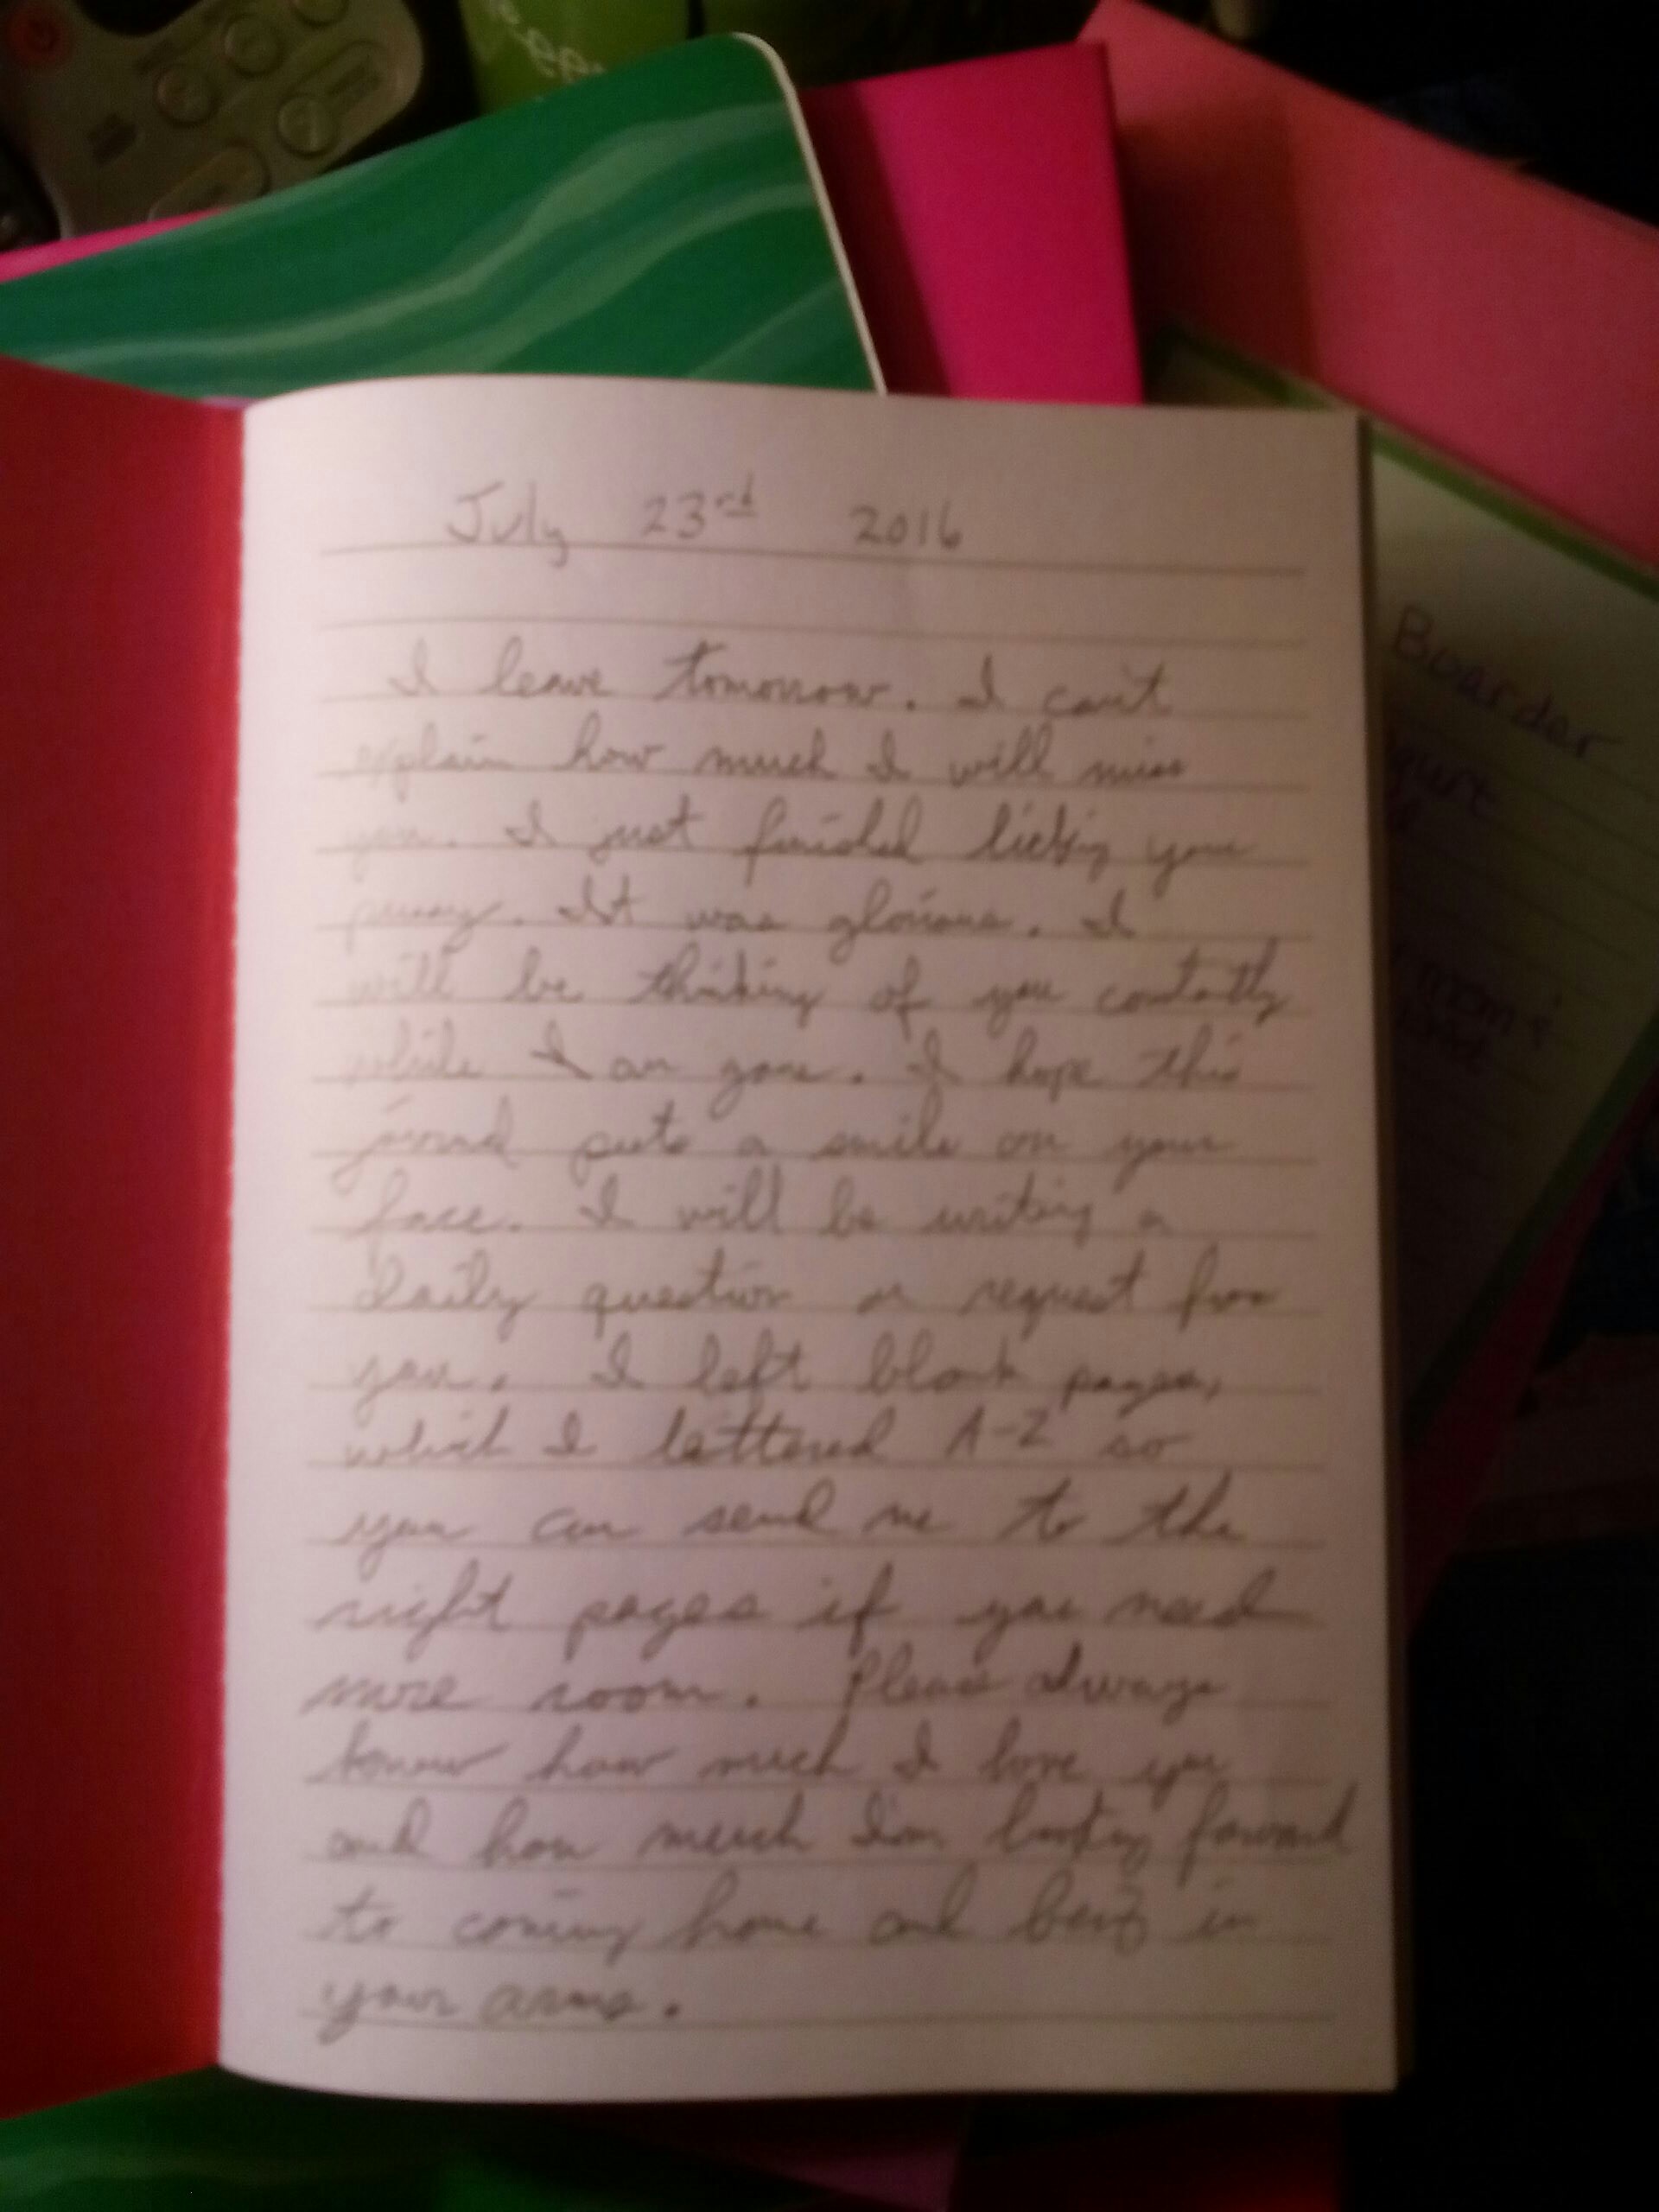 July 23rd 2016
I leave tomorrow. I can't
explain how much I will miss
you. I just finished licking your
pussy. It was glorious. I
will be thinking of you constatly
while I am gone. I hope this
jornal puts a smile on your
face. I will be writing a
daily question or request for
you. I left blank pages,
which I lettered A-Z so
you can send me to the
right pages if you need
more room. Please always
know how much I love you
and how much I'm looking forward
to coming home and being in
your arms.
Boarder
mom &